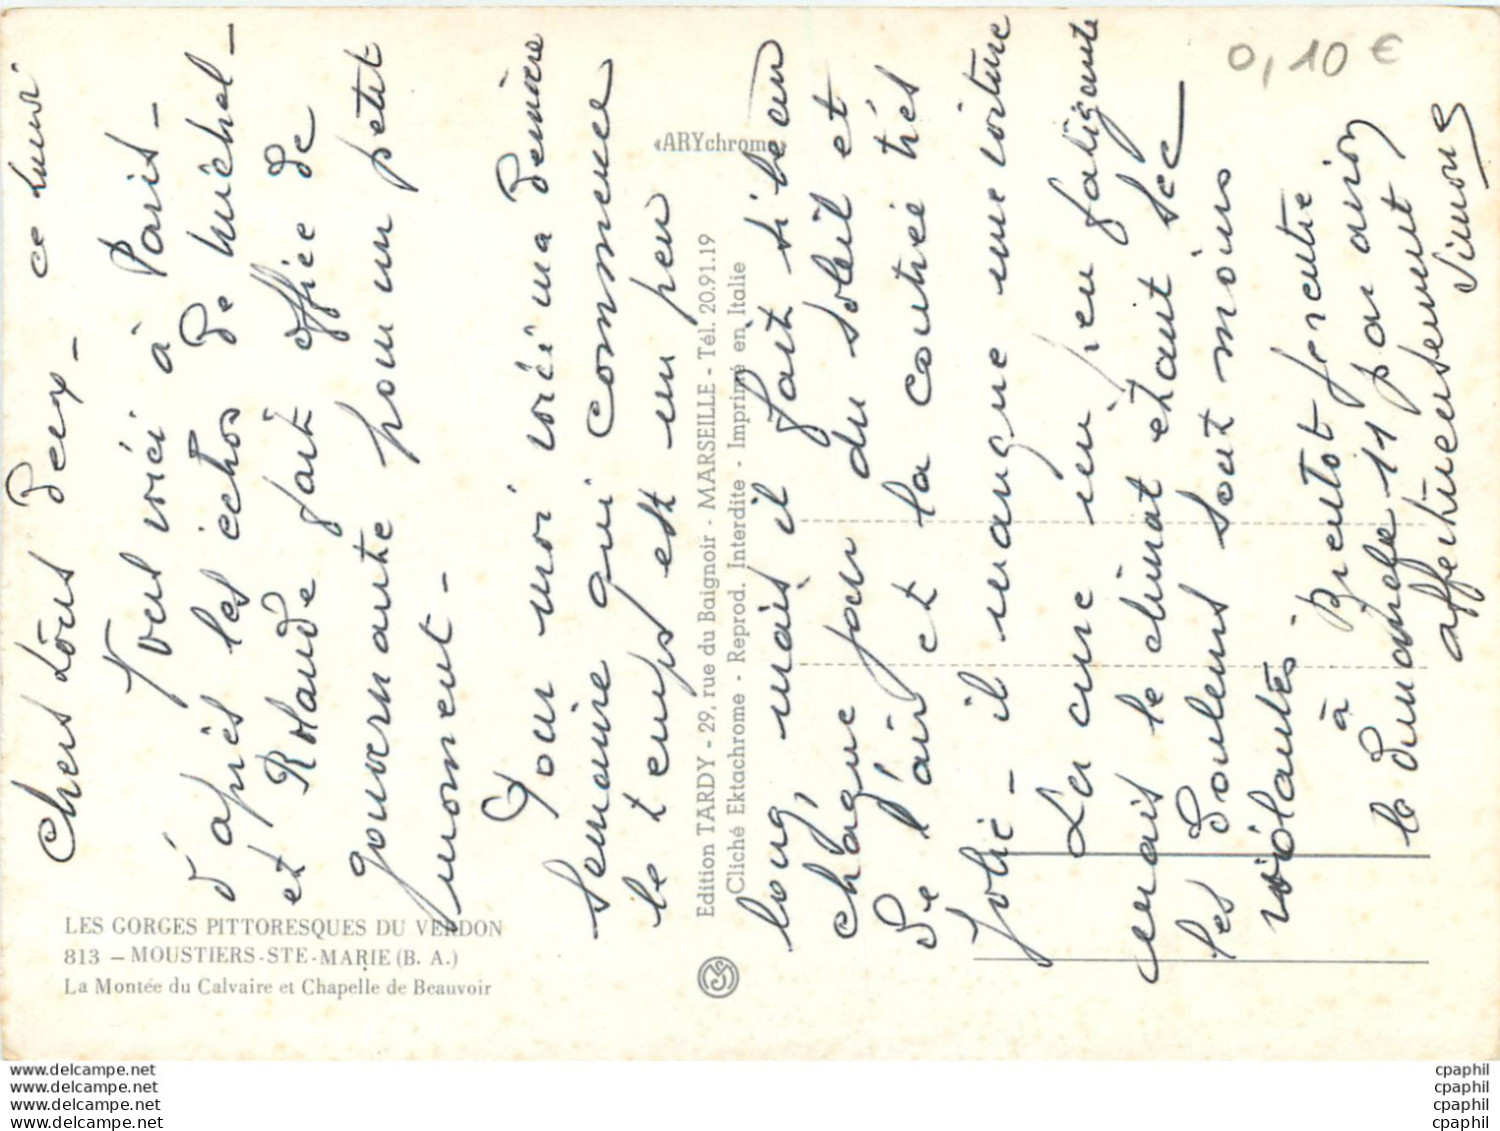 ce Lundi
Chers tous deux -
Vous voici à Paris -
d'après les échos de Michel -
et Rolande fait office de
gouvernante pour un petit
moment -
Pour moi voici ma dernière
semaine qui commence
le temps est un peu
long, mais il fait si beau
chaque jour du soleil et
de l'air et la contrée très
jolie - il manque une voiture
La cure un peu fatigante
mais le climat étant sec
les douleurs sont moins
violentes.
à Bientot je rentre
le Dimanche 11 par avion
affectueusement
Simone
0,10 €
«ARYchrome»
Edition TARDY - 29, rue du Baignoir - MARSEILLE - Tél. 20.91.19
Cliché Ektachrome - Reprod. Interdite - Imprimé en Italie
LES GORGES PITTORESQUES DU VERDON
813 – MOUSTIERS-STE-MARIE (B. A.)
La Montée du Calvaire et Chapelle de Beauvoir
www.delcampe.net
www.delcampe.net
www.delcampe.net
www.delcampe.net
cpaphil
cpaphil
cpaphil
cpaphil